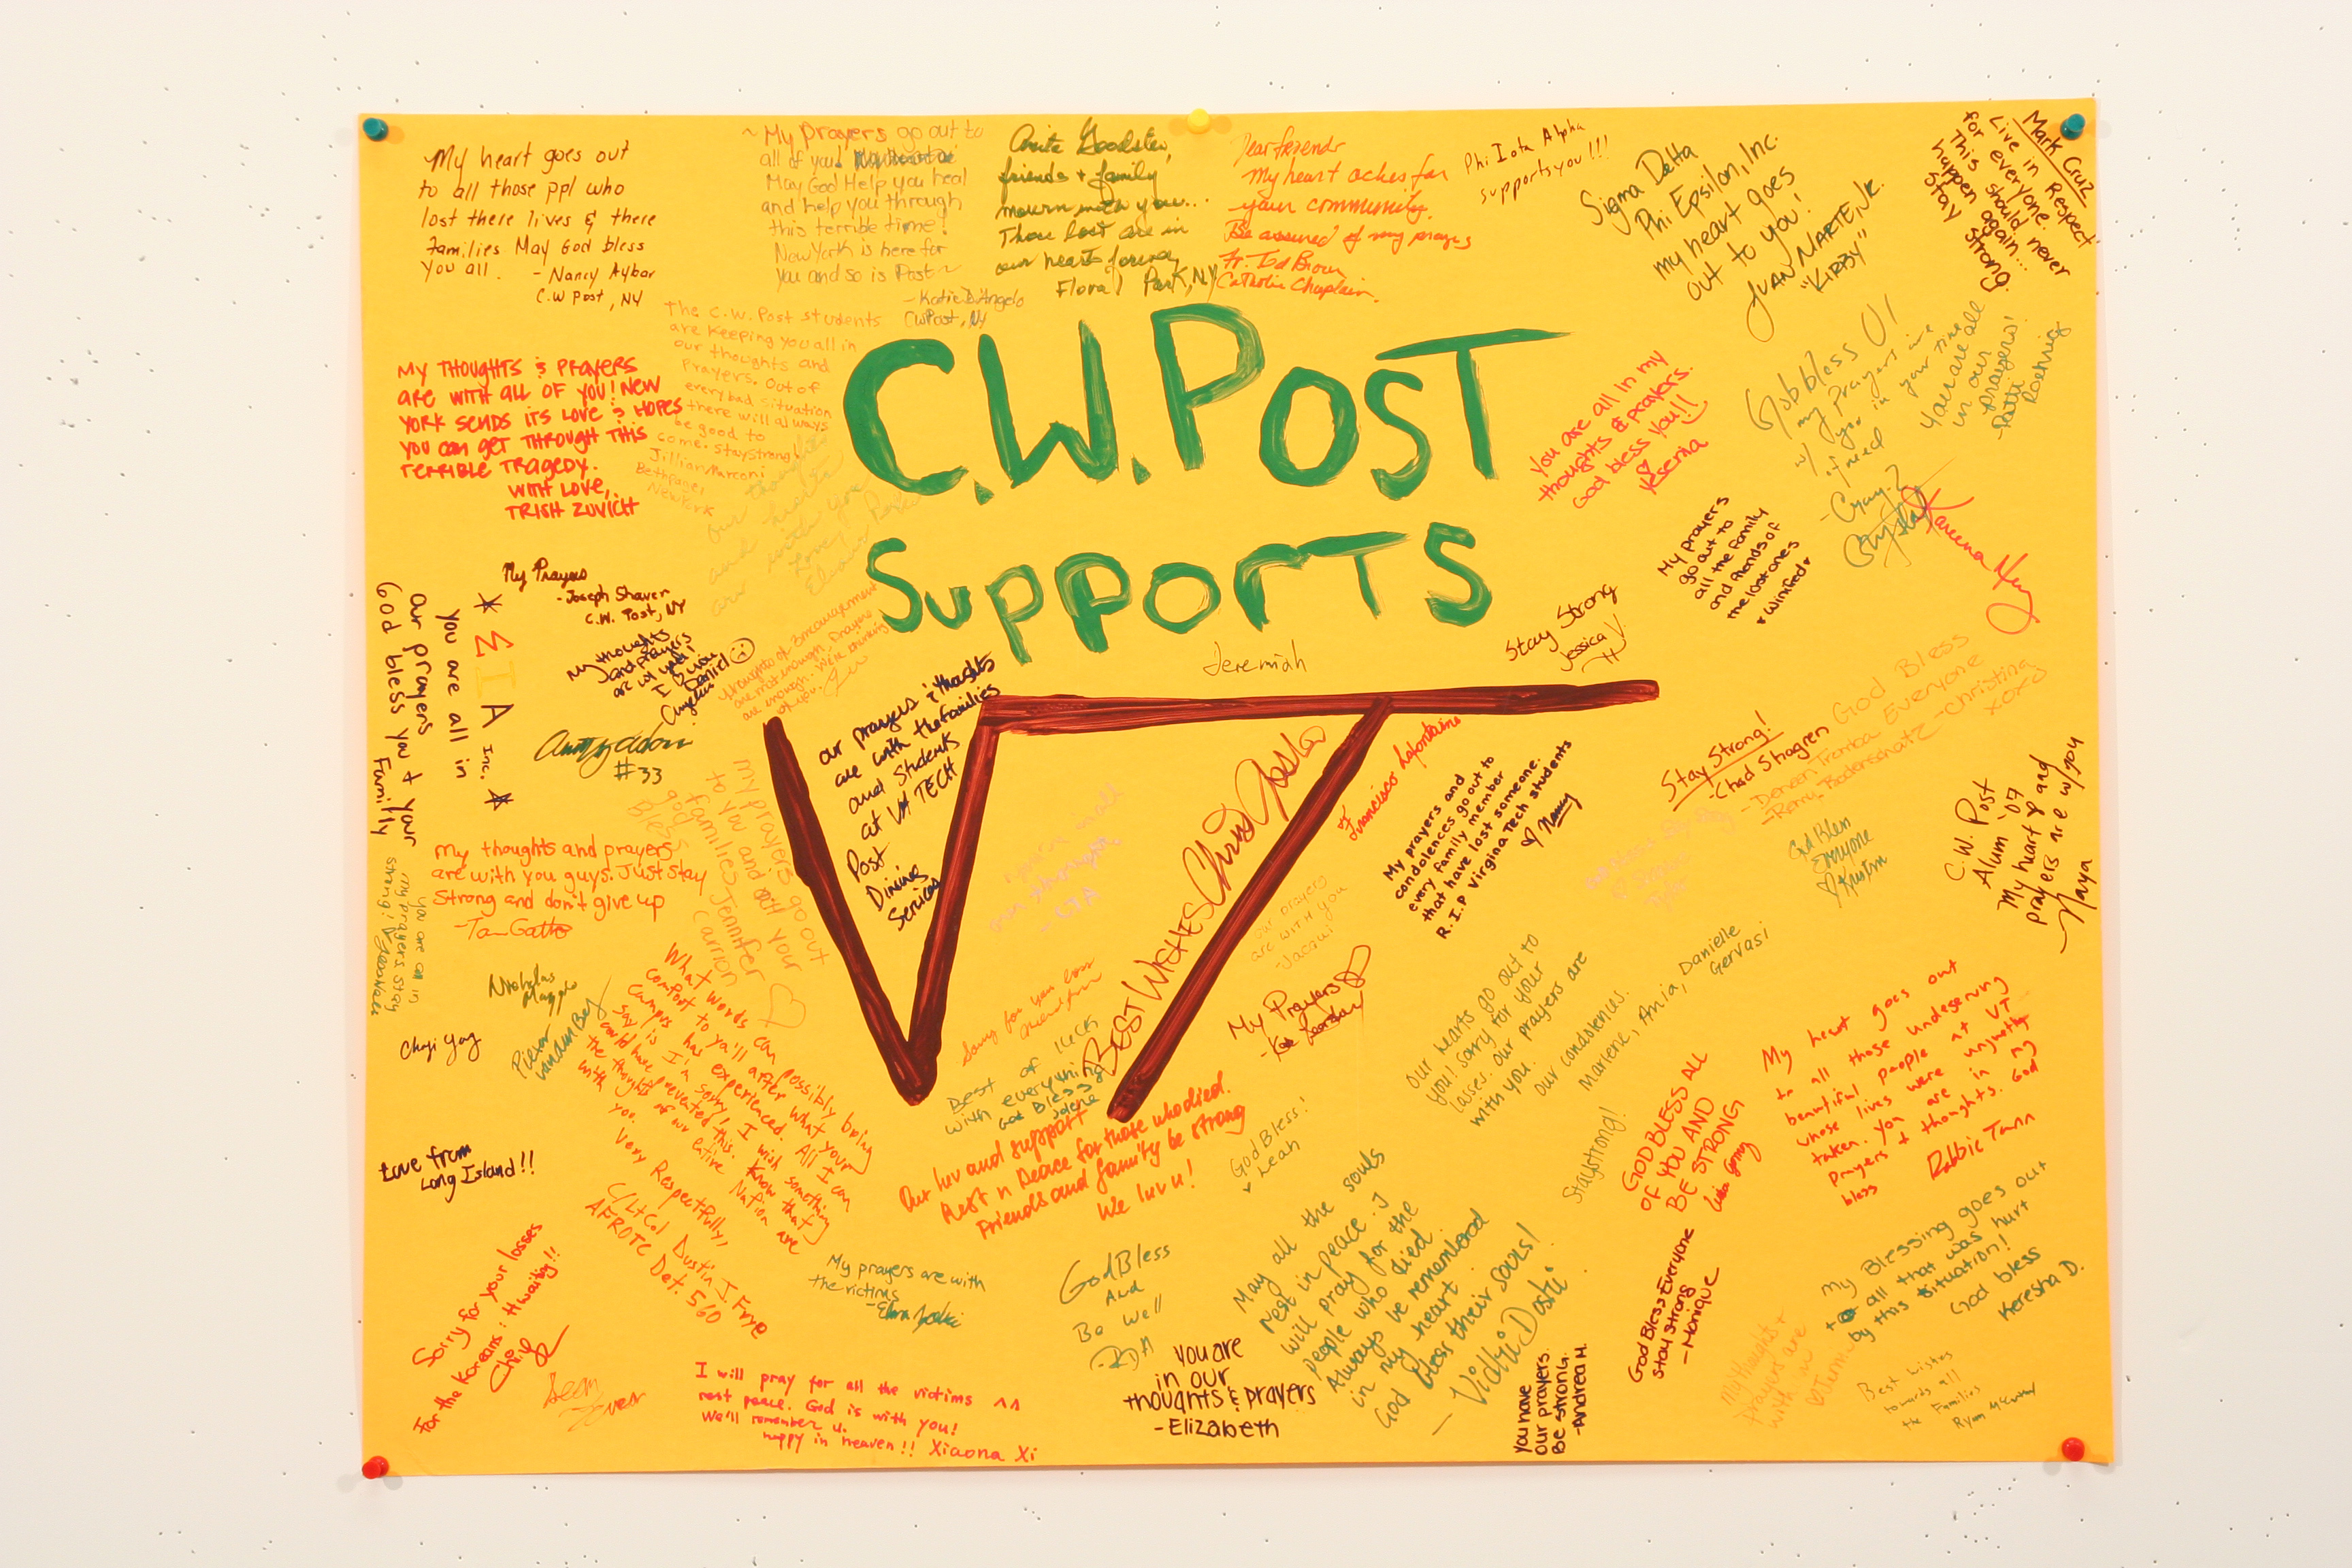 My heart goes out
to all those ppl who
lost there lives & there
Families May God bless
you all.
- Nancy Aybar
C.W Post, NY
~ My prayers go out to
all of you!
May God Help you heal
and help you through
this terrible time!
New York is here for
you and so is Post ~
- Katie D'Angelo
CW Post, NY
friends + family
mourn with you...
Those lost are in
our hearts forever
Floral Park, NY
Dear friends
My heart aches for
your community.
Be assured of my prayers
Fr. Ted Brown
Catholic Chaplain.
Phi Iota Alpha
supports you!!!
Sigma Delta
Phi Epsilon, Inc.
my heart goes
out to you!
JUAN NARTE, JR.
"KIRBY"
Mark Cruz
Live in Respect
for everyone.
This should never
happen again...
Stay Strong.
The C.W. Post students
are keeping you all in
our thoughts and
prayers. Out of
every bad situation
there will always
be good to
come. Stay strong!
Jillian Marconi
Bethpage,
New York
MY THOUGHTS & PRAYERS
ARE WITH ALL OF YOU! NEW
YORK SENDS ITS LOVE & HOPES
YOU CAN GET THROUGH THIS
TERRIBLE TRAGEDY.
WITH LOVE,
TRISH ZUVICH
C.W. Post
Supports
VT
Jeremiah
You are all in my
thoughts & prayers.
God bless you!!
Yesenia
God bless U!
my prayers are
w/ you in your time
of need
you are all
in our
prayers!
- Patti
Roehrig
My prayers
go out to
all the family
and friends of
the lost ones
♥ Winifred ♥
Kareena
Stay Strong
Jessica V.
My Prayers
- Joseph Shaver
C.W. Post, NY
My thoughts
and prayers
are w/ you!
I ♡ you
Daniel
* Σ I A Inc. *
you are all in
our prayers
God bless you + your
Family
#33
our prayers & thoughts
are with the families
and Students
at VA TECH
Post
Dining
Services
BEST WISHES Chris
Francisco Lafontaine
My prayers and
condolences go out to
every family member
that have lost someone.
R.I.P Virgina Tech students
♡ Nancy
Stay Strong!
- Chad Shogren
God Bless
Everyone
- Christina
xoxo
God Bless
Everyone
♡ Kristin
C.W. Post
Alum '07
My heart and
prayers are w/ you
- Naya
my prayers go out
to you and all your
families Jennifer
Carrion
god
Bless
My thoughts and prayers
are with you guys. Just stay
Strong and don't give up
- Tom Gatto
you are all in
my prayers stay
strong!
Nicholas
our prayers
are with you
- Jacqui
My Prayers
Sorry for your loss
Best of luck
with everything
God Bless
Jolene
our hearts go out to
you! sorry for your
losses. our prayers are
with you.
our condolences.
Marlene, Ania, Danielle
Gervasi
My heart goes out
to all those undeserving
beautiful people at VT
whose lives were unjustly
taken. You are in my
prayers + thoughts. God
bless
Robbie Tann
What words can possibly bring
comfort to ya'll after what your
campus has experienced. All I can
say is I'm sorry, I wish something
could have prevented this. Know that
the thoughts of our entire Nation are
with you.
Very Respectfully,
C/Lt Col Dustin J. Frye
AFROTC Det. 560
Love from
Long Island!!
Our luv and support
Rest n Peace for those who died.
Friends and family be strong
We luv u!
God Bless!
♥ Leah
Stay strong!
GOD BLESS ALL
OF YOU AND
BE STRONG
My Blessing goes out
to all that was hurt
by this situation!
God bless
Keresha D.
My prayers are with
the victims
Sorry for your losses
For the Koreans: Hwaiting!!
Sean
God Bless
And
Be Well
May all the souls
rest in peace. I
will pray for the
people who died.
Always be remembered
in my heart.
God bless their souls!
- Vidhi Doshi
God Bless Everyone
Stay Strong
- Monique
I will pray for all the victims ^^
rest peace. God is with you!
We'll remember u.
happy in heaven!! Xiaona Xi
You are
in our
thoughts & prayers
- Elizabeth
You have
our prayers.
Be strong.
- Andrea H.
My thoughts +
prayers are
with u
Best wishes
towards all
the Families